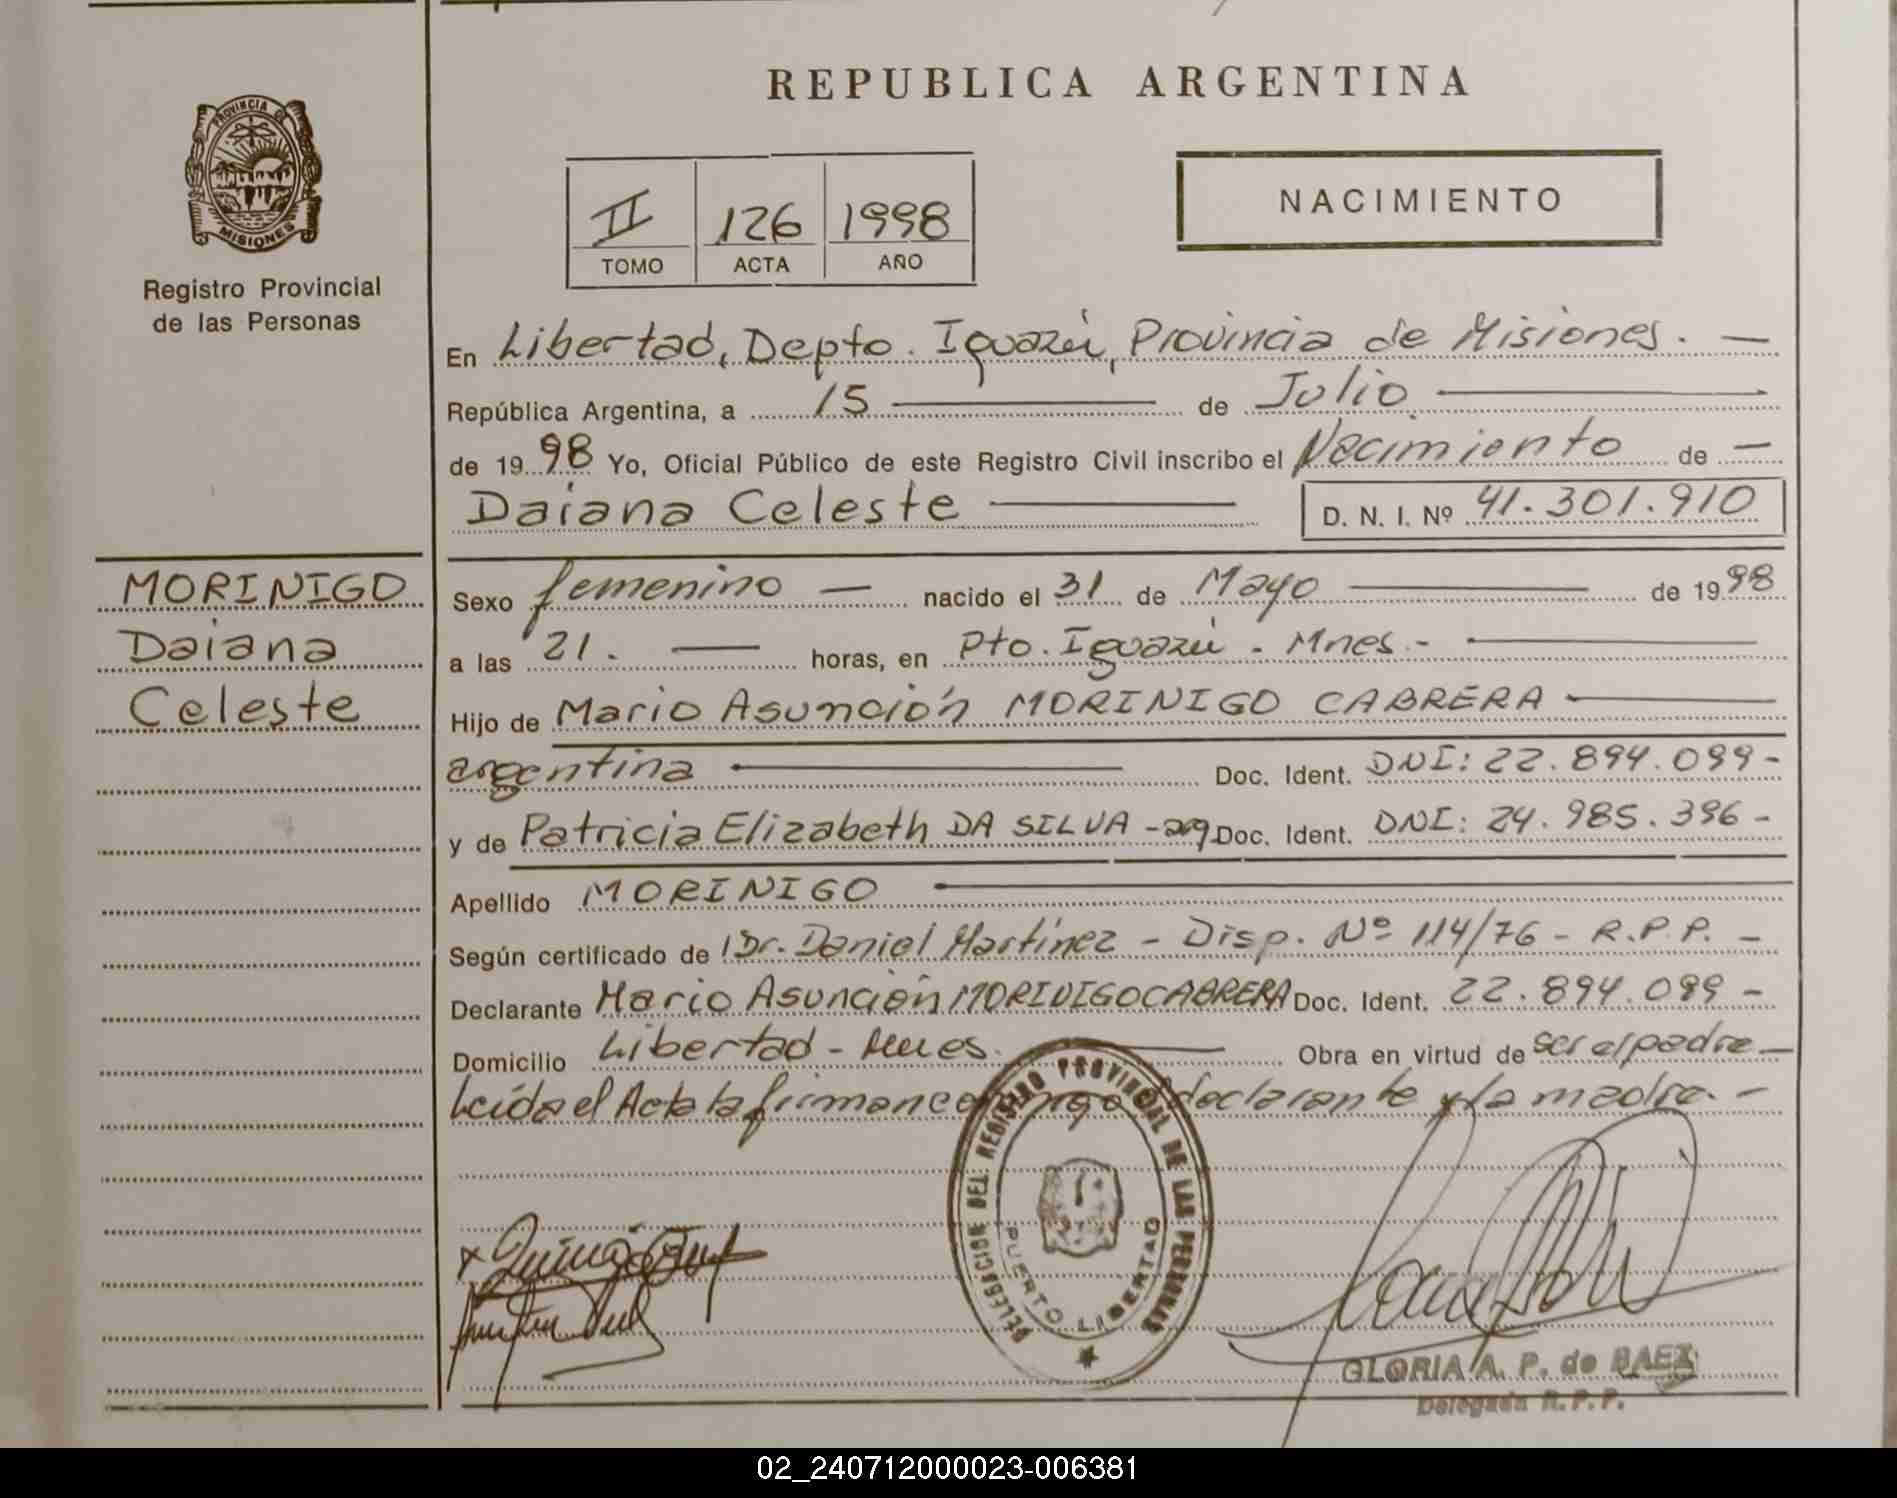 REPUBLICA ARGENTINA
PROVINCIA DE
MISIONES
Registro Provincial
de las Personas
II 126 1998
TOMO ACTA AÑO
NACIMIENTO
En Libertad, Depto. Iguazú, Provincia de Misiones. —
República Argentina, a 15 — de Julio —
de 1998 Yo, Oficial Público de este Registro Civil inscribo el Nacimiento de —
Daiana Celeste — D. N. I. Nº 41.301.910
MORINIGO
Daiana
Celeste
Sexo femenino — nacido el 31 de Mayo — de 1998
a las 21. — horas, en Pto. Iguazú - Mnes.- —
Hijo de Mario Asunción MORINIGO CABRERA —
argentina — Doc. Ident. DNI: 22.894.099-
y de Patricia Elizabeth DA SILVA -arg Doc. Ident. DNI: 24.985.396-
Apellido MORINIGO —
Según certificado de Dr. Daniel Martínez - Disp. Nº 114/76 - R.P.P. -
Declarante Mario Asunción MORINIGO CABRERA Doc. Ident. 22.894.099-
Domicilio Libertad - Mnes. — Obra en virtud de ser el padre —
Leída el Acta la firman conmigo declarante y la madre. -
DELEGACION DEL REGISTRO PROVINCIAL DE LAS PERSONAS
PUERTO LIBERTAD
GLORIA A. P. de BAEZ
Delegada R.P.P.
02_240712000023-006381